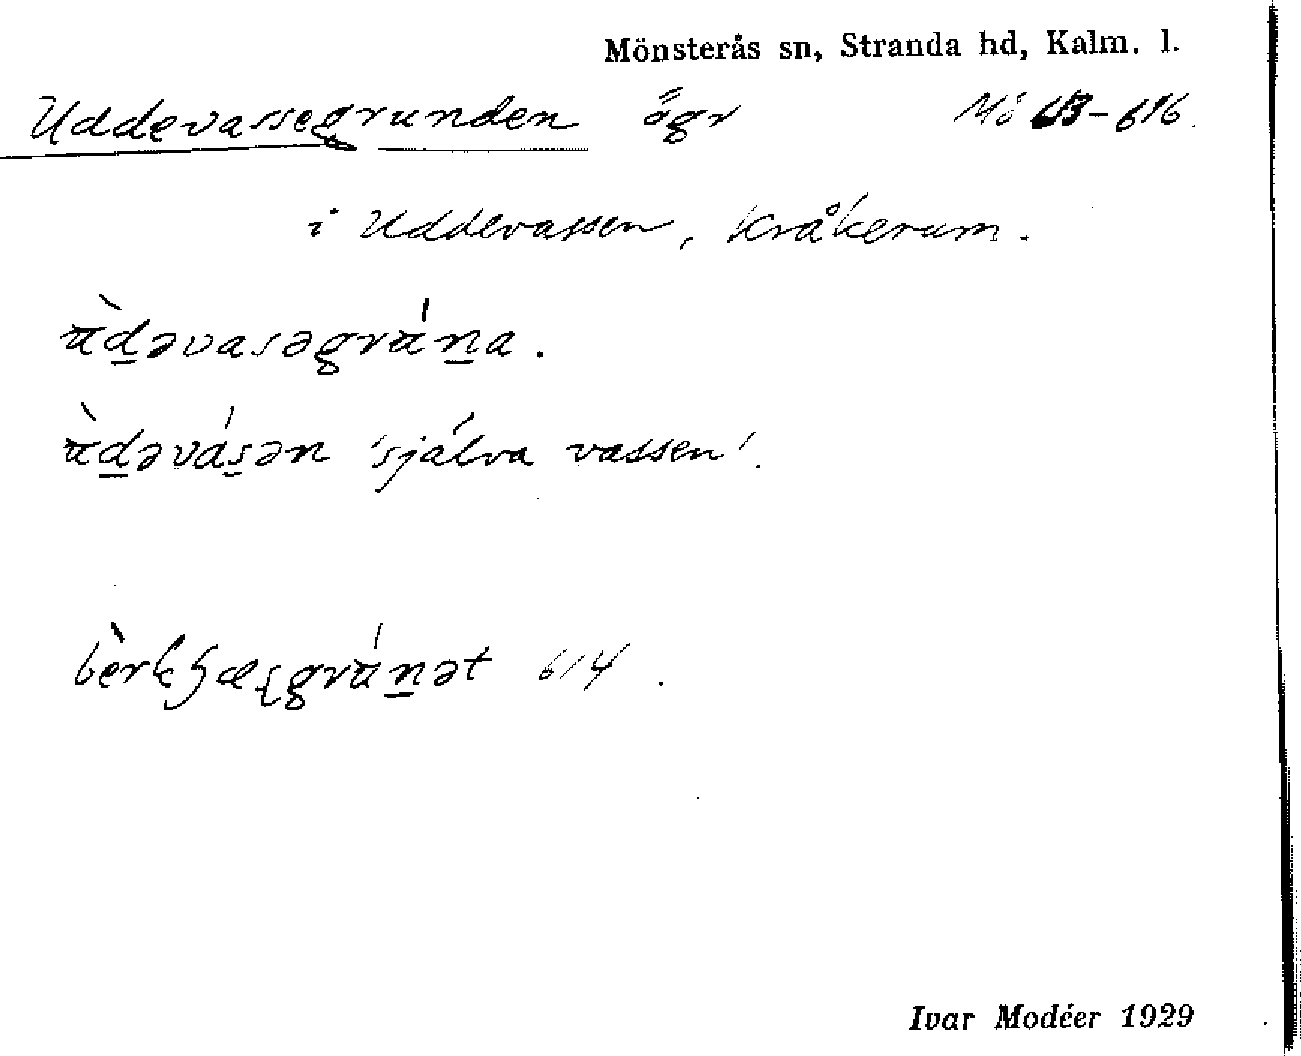 Mönsterås sn, Stranda hd, Kalm. l.
Uddevassegrunden ögr Mö 613-616.
i Uddevassen, Kråkerum.
ùd̲əvasəgrún̲a.
ùd̲əvás̲ən 'själva vassen'.
614.
Ivar Modéer 1929